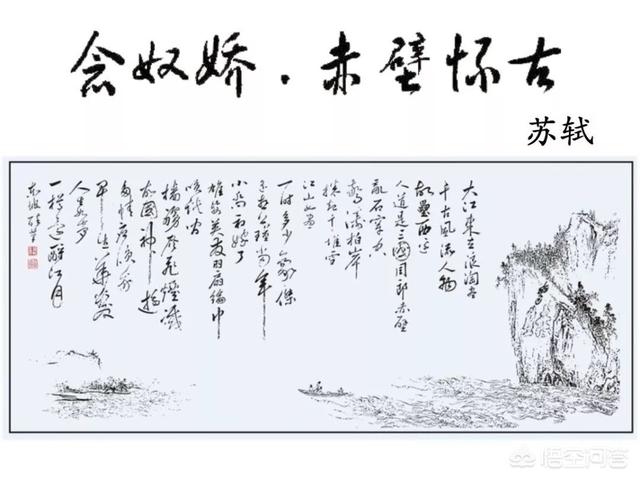 念奴娇·赤壁怀古
苏轼
大江東去浪淘尽
千古风流人物
故壘西边
人道是三國周郎赤壁
乱石穿空
驚濤拍岸
捲起千堆雪
江山如畫
一时多少豪傑
遥想公瑾当年
小乔初嫁了
雄姿英发羽扇綸巾
談笑间
樯櫓灰飞煙滅
故國神遊
多情应笑我
早生华发
人生如梦
一樽还酹江月
东坡
悟空问答